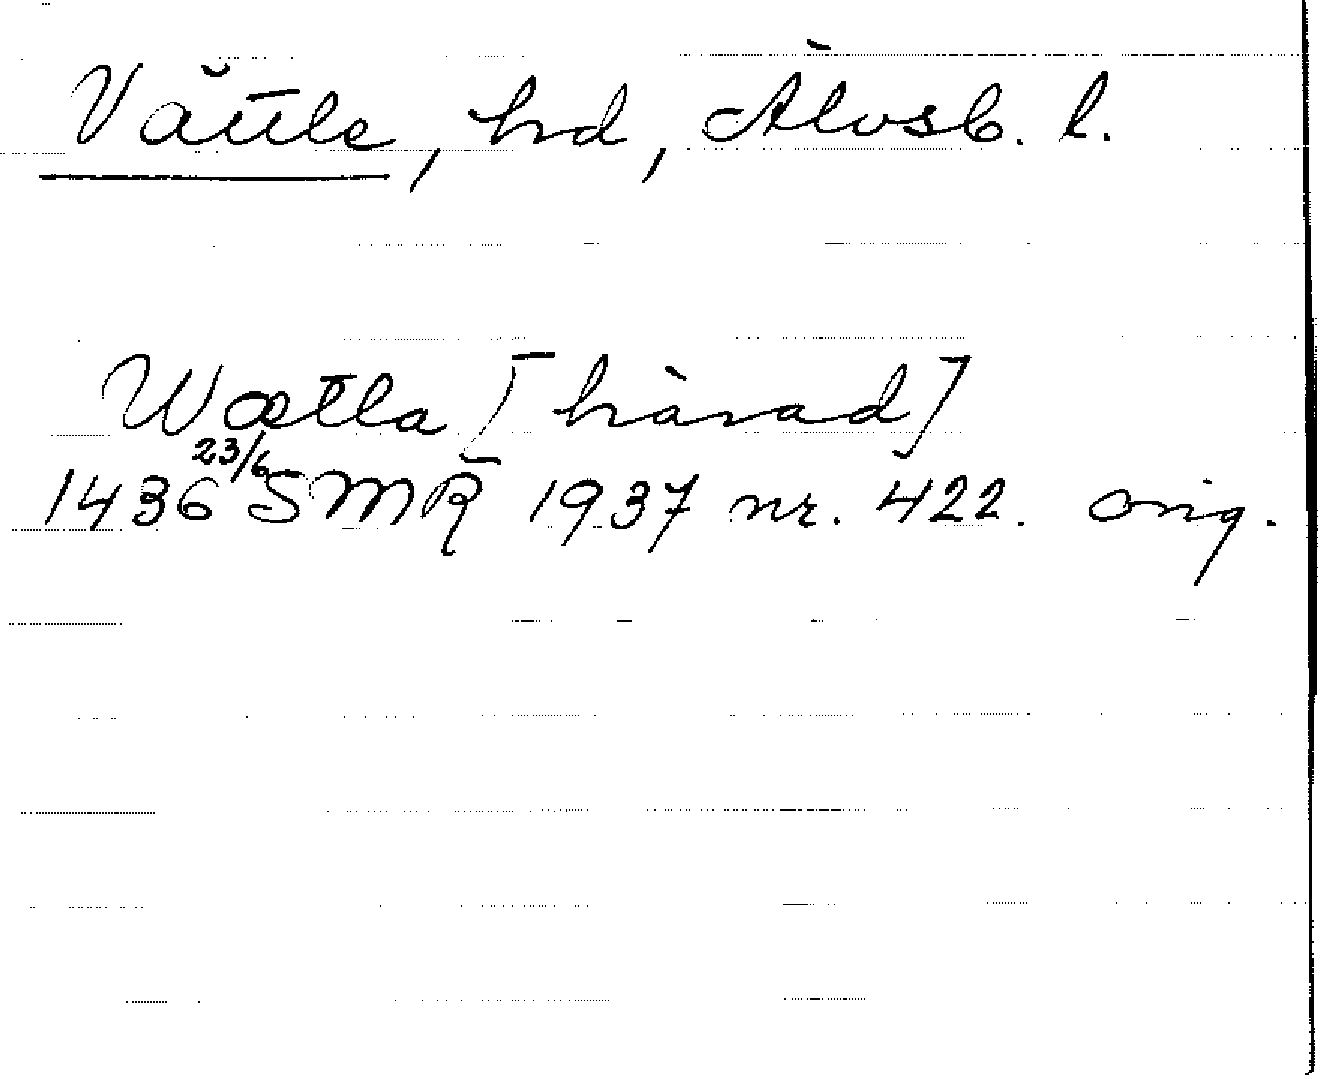 Vättle, hd, Älvsb. l.
Wætla [härad]
1436 23/6 SMR 1937 nr. 422. orig.